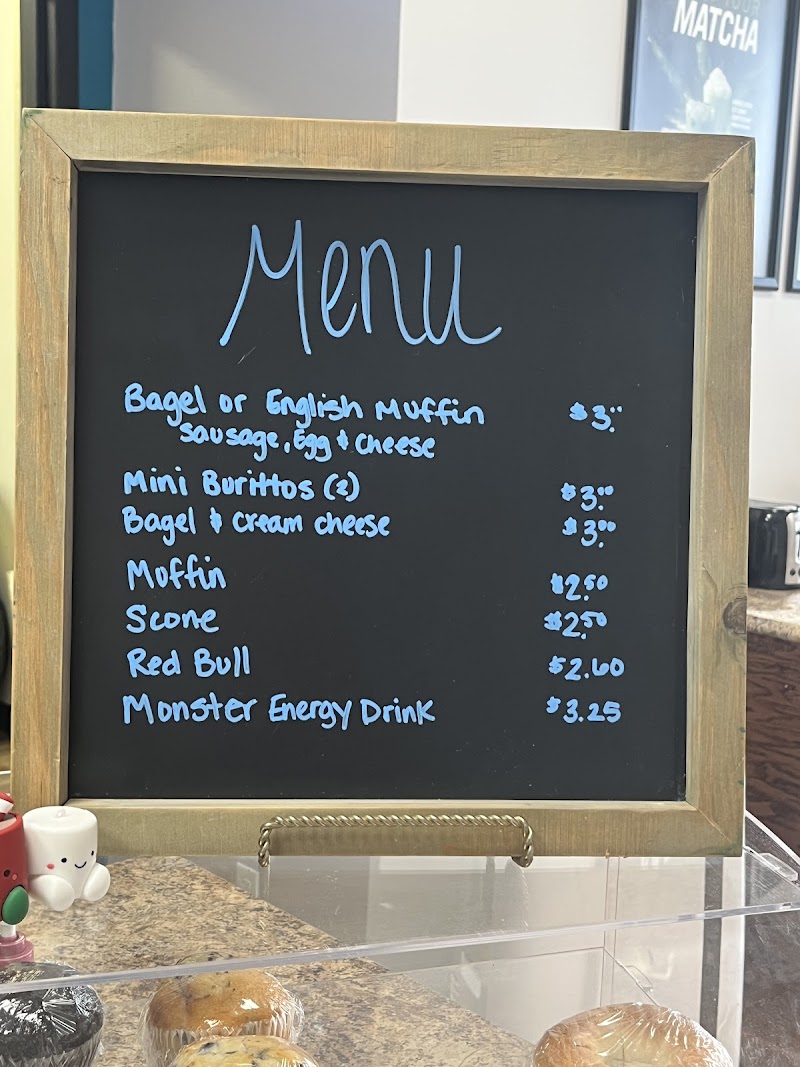 MATCHA
Menu
Bagel or English Muffin $3.00
Sausage, Egg & Cheese
Mini Burittos (2) $3.00
Bagel & Cream cheese $3.00
Muffin $2.50
Scone $2.50
Red Bull $2.60
Monster Energy Drink $3.25